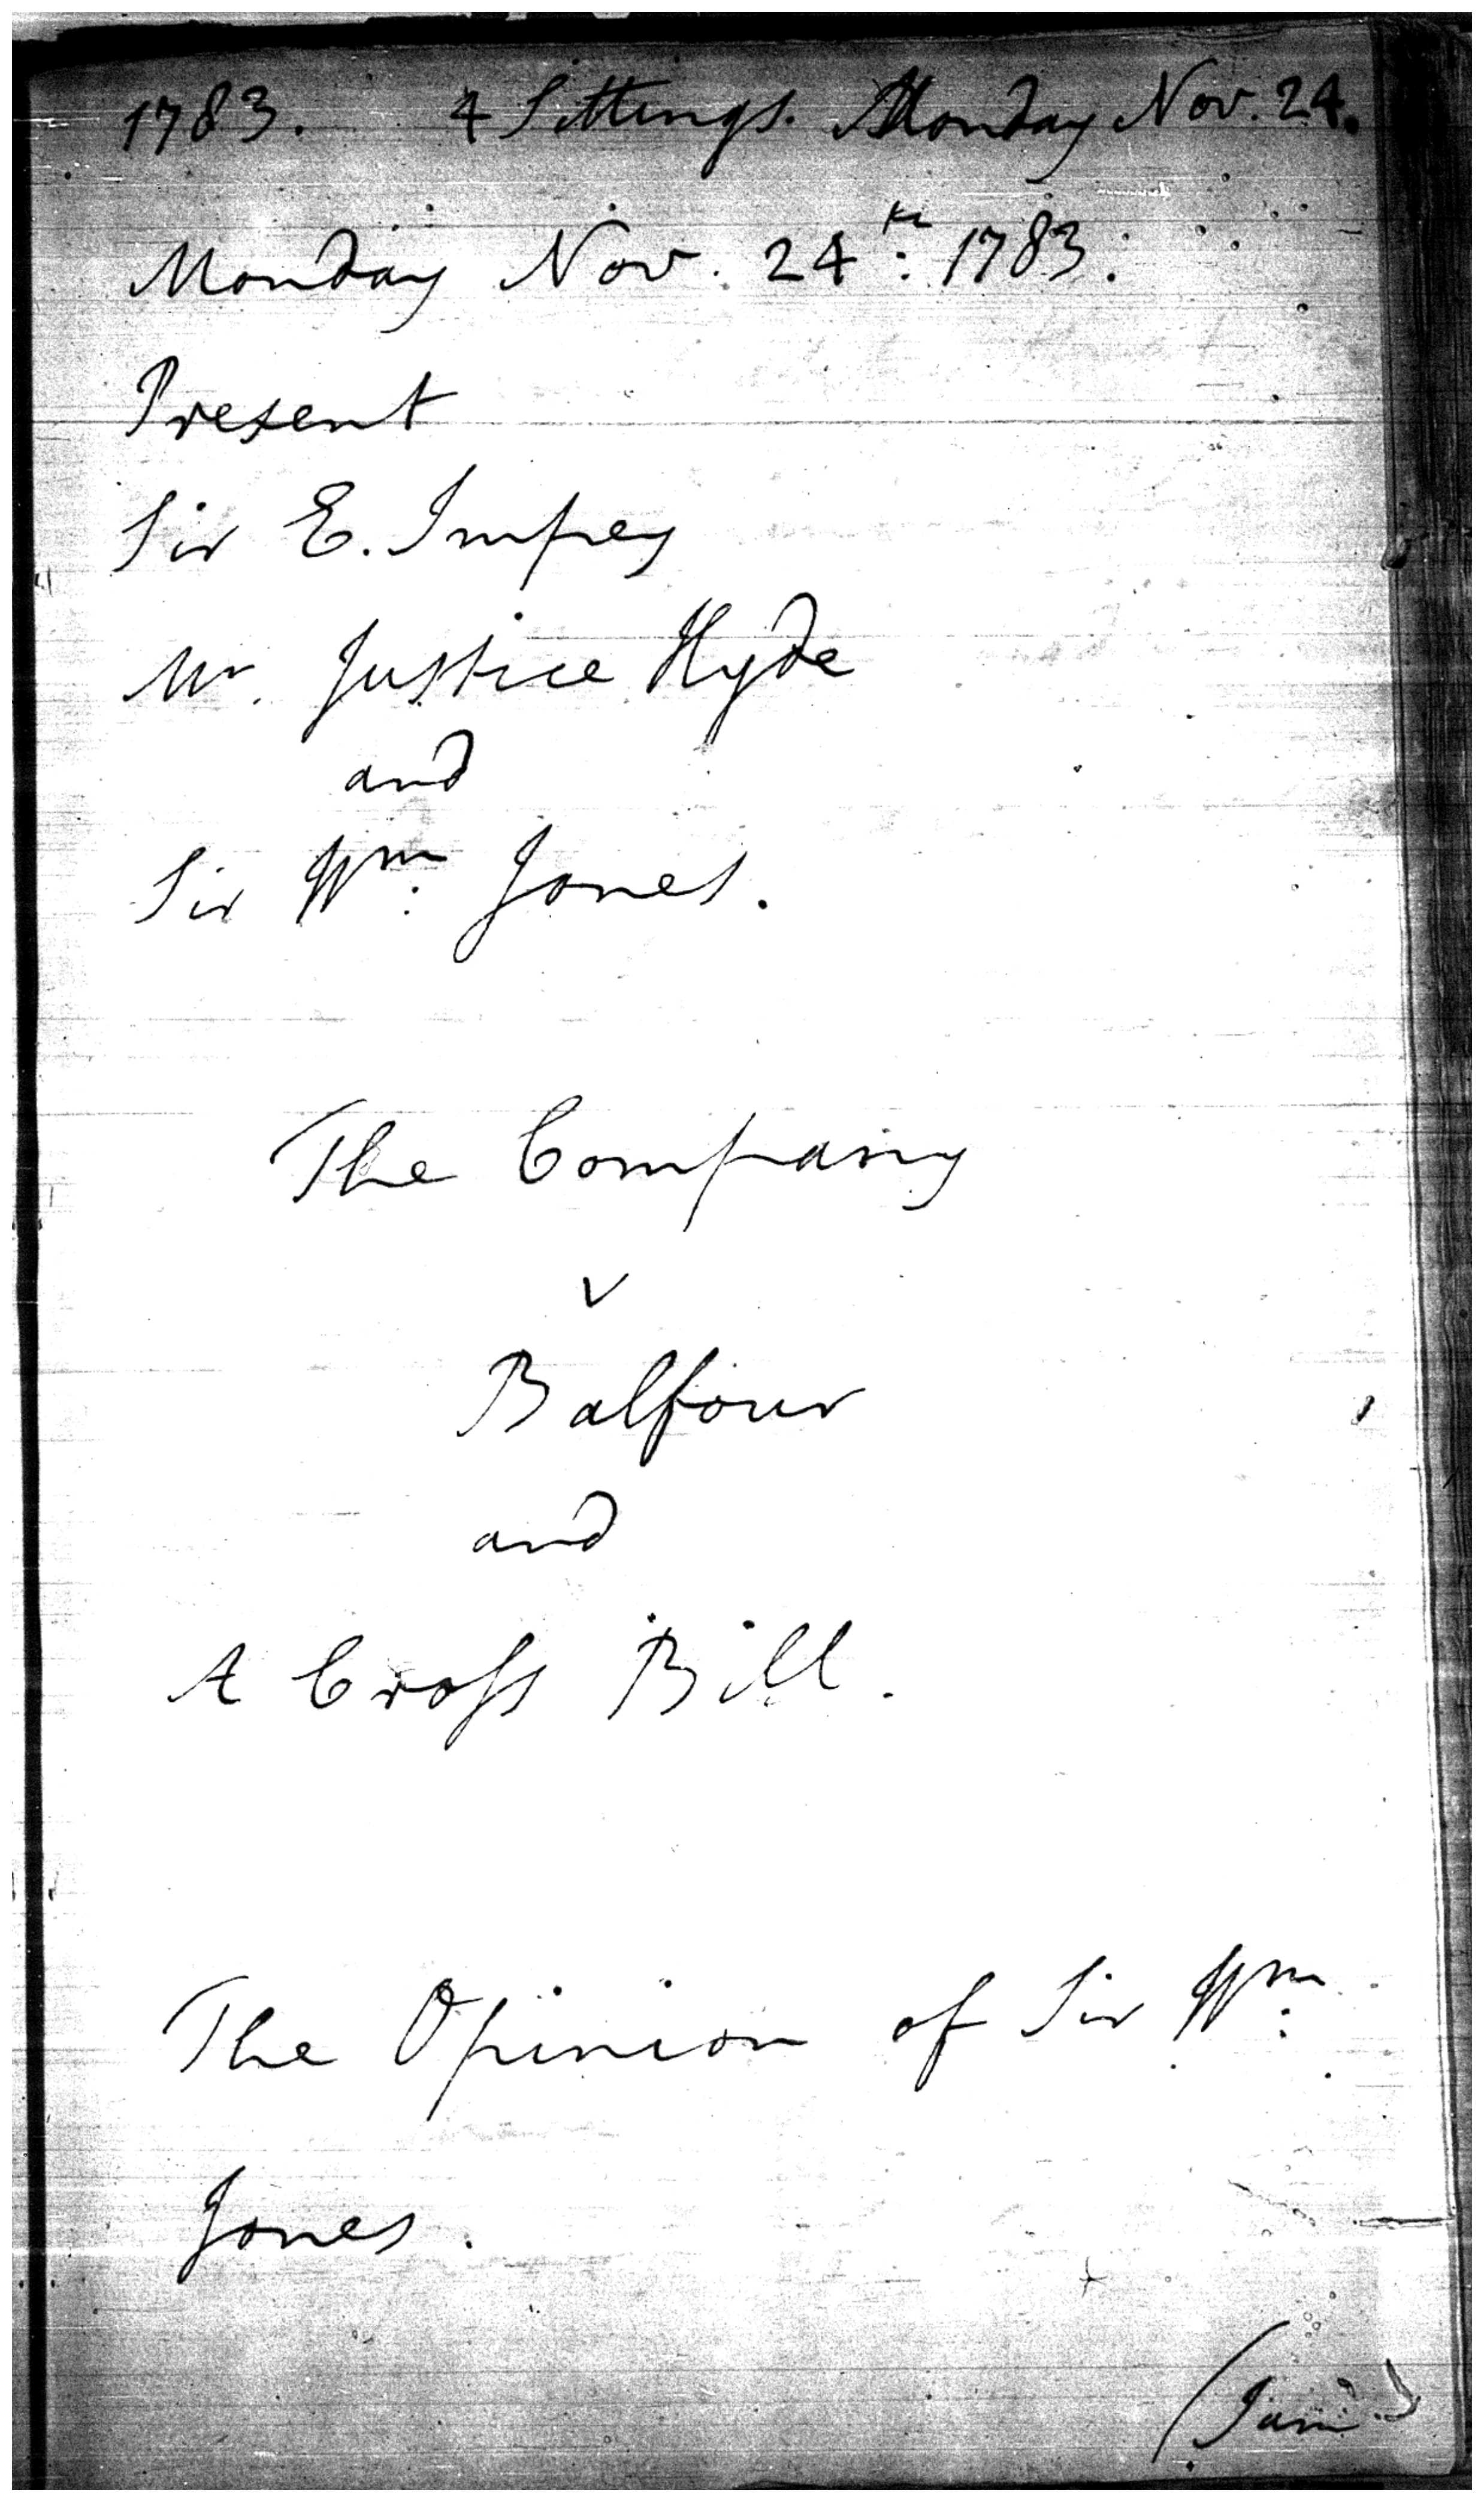 1783. 4 Sittings. Monday Nov. 24.
Monday Nov. 24th: 1783.
Present
Sir E. Impey
Mr. Justice Hyde
and
Sir Wm: Jones.
The Company
v
Balfour
and
A Cross Bill.
The Opinion of Sir Wm:
Jones.